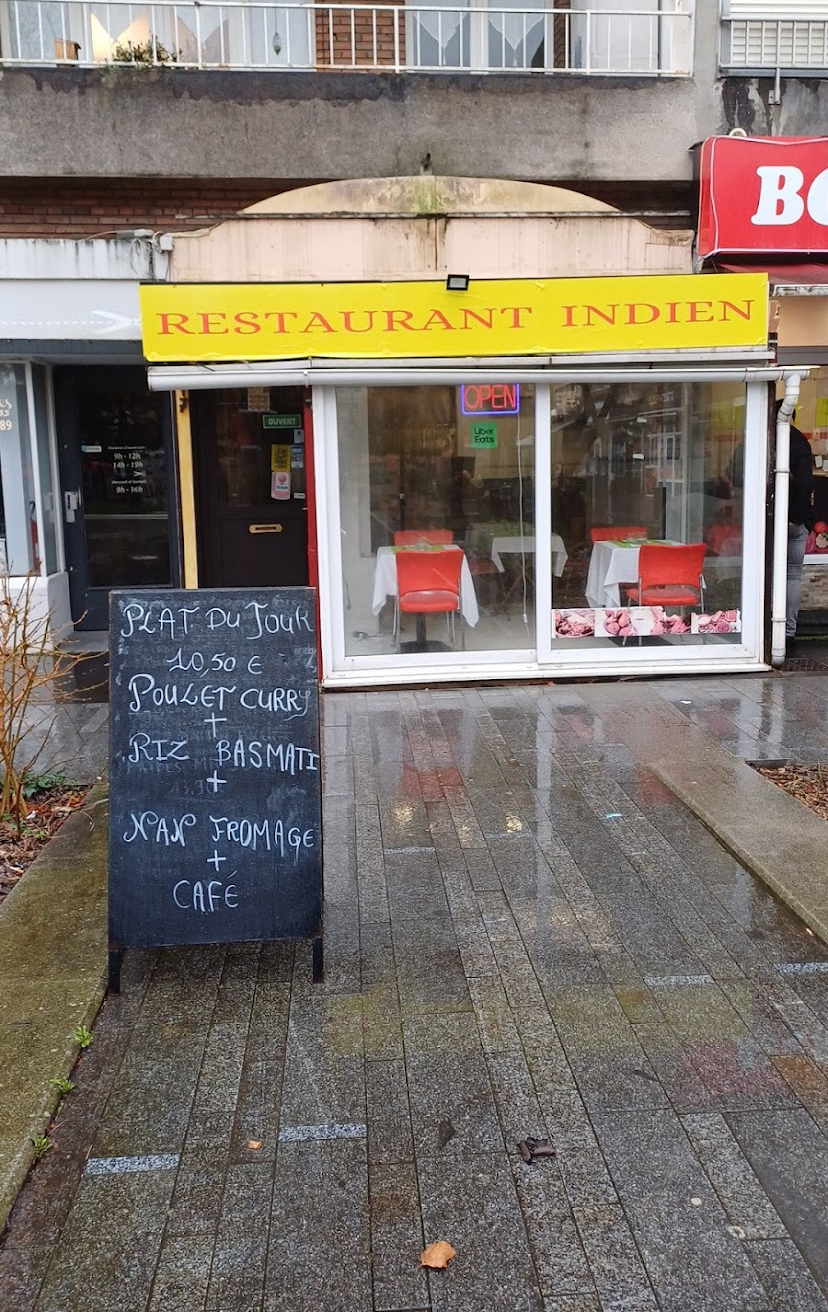 BO
RESTAURANT INDIEN
OPEN
Uber
Eats
OUVERT
89
9h - 12h
14h - 19h
9h - 16h
PLAT DU JOUR
10,50 €
POULET CURRY
+
RIZ BASMATI
+
NAN FROMAGE
+
CAFÉ